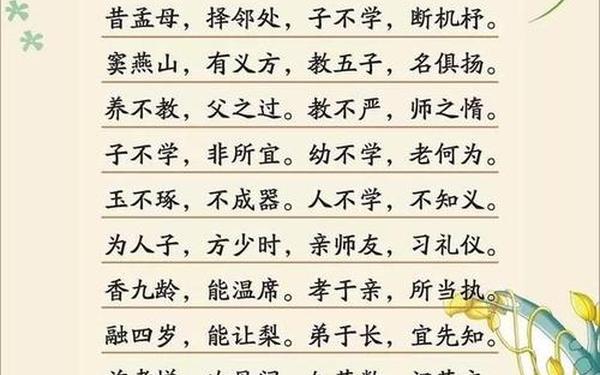 昔孟母，择邻处，子不学，断机杼。
窦燕山，有义方，教五子，名俱扬。
养不教，父之过。教不严，师之惰。
子不学，非所宜。幼不学，老何为。
玉不琢，不成器。人不学，不知义。
为人子，方少时，亲师友，习礼仪。
香九龄，能温席。孝于亲，所当执。
融四岁，能让梨。弟于长，宜先知。